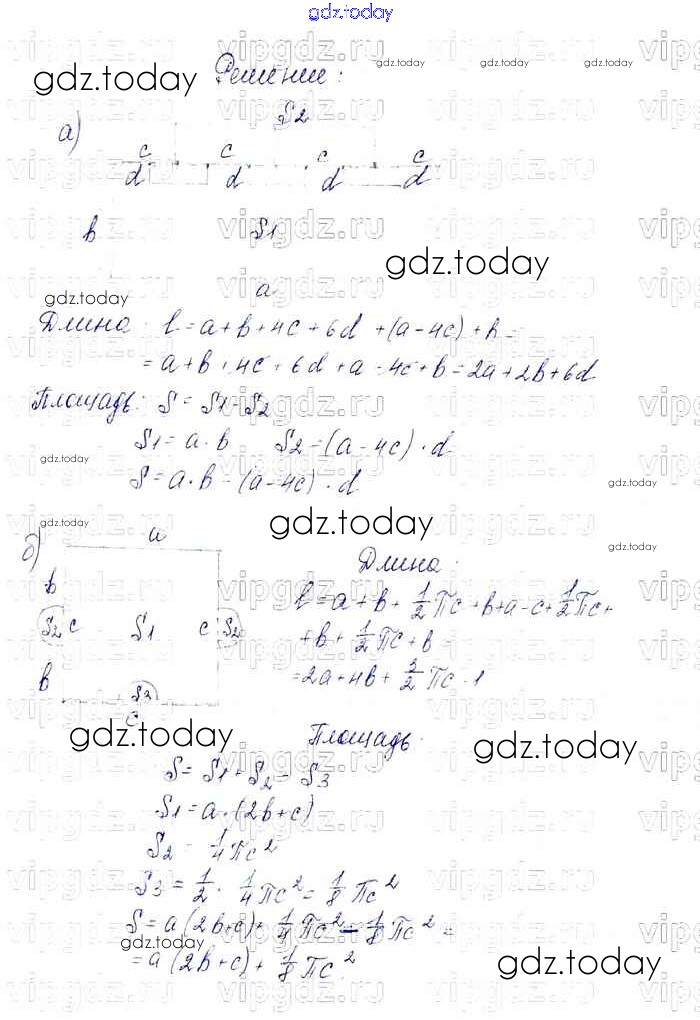 gdz.today
Решение:
gdz.today
gdz.today gdz.today gdz.today
а)
S2
c c c c
d d d d
b S1
gdz.today
gdz.today
a
Длина: l = a + b + 4c + 6d + (a - 4c) + b =
= a + b + 4c + 6d + a - 4c + b = 2a + 2b + 6d
Площадь: S = S1 - S2
S1 = a · b S2 = (a - 4c) · d
gdz.today
S = a · b - (a - 4c) · d
gdz.today
gdz.today
gdz.today
gdz.today
б)
a
Длина:
b
l = a + b + 1/2 πc + b + a - c + 1/2 πc +
S2 c S1 c S2
+ b + 1/2 πc + b =
b
= 2a + 4b + 3/2 πc - 1
S3
c
gdz.today
Площадь:
gdz.today
S = S1 + S2 - S3
S1 = a · (2b + c)
S2 = 1/4 πc²
S3 = 1/2 · 1/4 πc² = 1/8 πc²
S = a (2b + c) + 1/4 πc² - 1/8 πc² =
gdz.today
= a (2b + c) + 1/8 πc²
gdz.today
vipgdz.ru